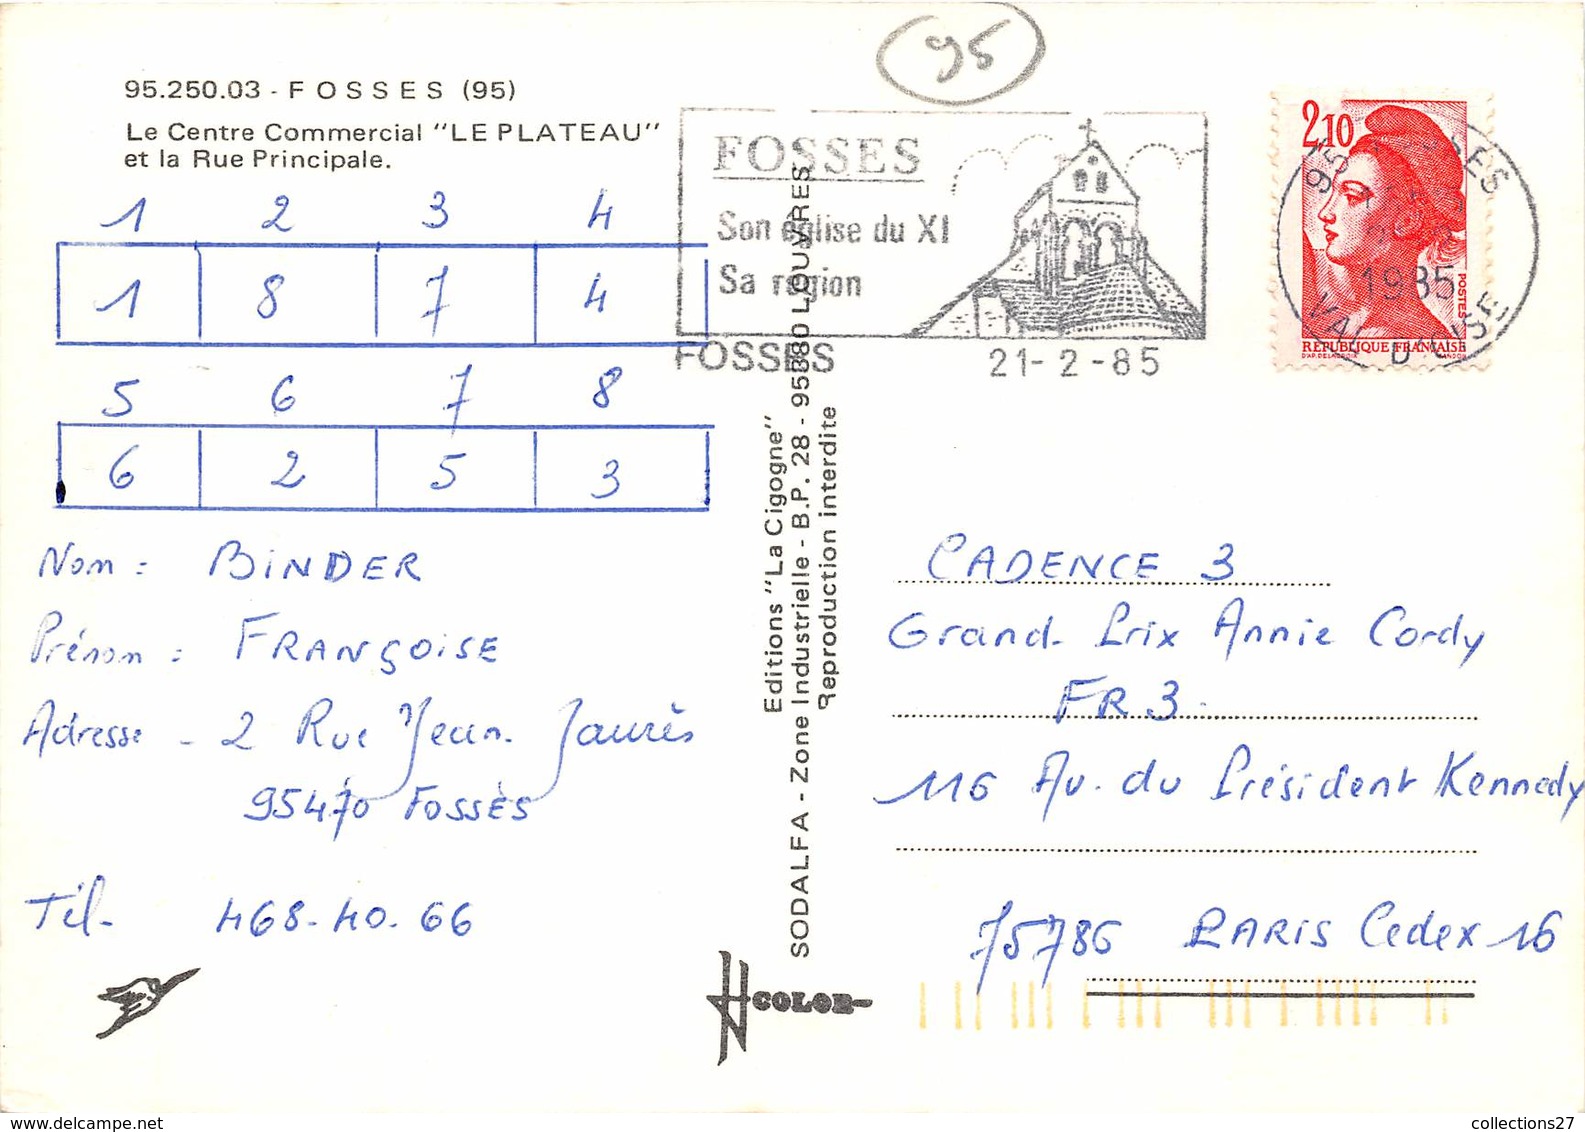 95
95.250.03 - FOSSES (95)
Le Centre Commercial "LE PLATEAU"
et la Rue Principale.
1 2 3 4
1 8 7 4
5 6 7 8
6 2 5 3
Nom : BINDER
Prénom : FRANÇOISE
Adresse - 2 Rue Jean Jaurès
95470 FOSSÈS
Tél- 468-40-66
FOSSES
Son église du XI
Sa région
FOSSES 21-2-85
2,10
POSTES
RÉPUBLIQUE FRANÇAISE
95 FOSSES
1985
VAL D'OISE
Editions "La Cigogne"
SODALFA - Zone Industrielle - B.P. 28 - 95380 LOUVRES
Reproduction interdite
COLOR
CADENCE 3
Grand Prix Annie Cordy
FR3-
116 Av. du Président Kennedy
75786 PARIS Cedex 16
collections27